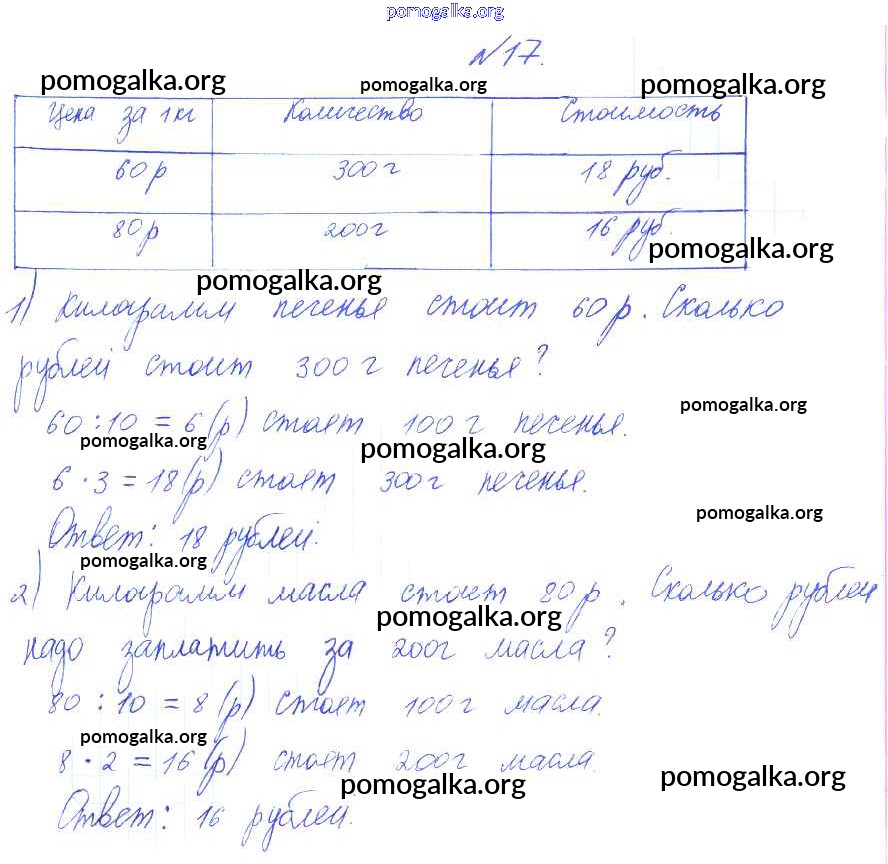 pomogalka.org
№17.
pomogalka.org pomogalka.org pomogalka.org
Цена за 1кг Количество Стоимость
60р 300г 18 руб.
80р 200г 16 руб.
pomogalka.org
pomogalka.org
1) Килограмм печенья стоит 60р. Сколько
рублей стоит 300г печенья?
pomogalka.org
60:10=6(р) стоит 100г печенья.
pomogalka.org pomogalka.org
6·3=18(р) стоит 300г печенья.
pomogalka.org
Ответ: 18 рублей.
pomogalka.org
2) Килограмм масла стоит 80р. Сколько рублей
pomogalka.org
надо заплатить за 200г масла?
80:10=8(р) стоит 100г масла.
pomogalka.org
8·2=16(р) стоит 200г масла.
pomogalka.org pomogalka.org
Ответ: 16 рублей.